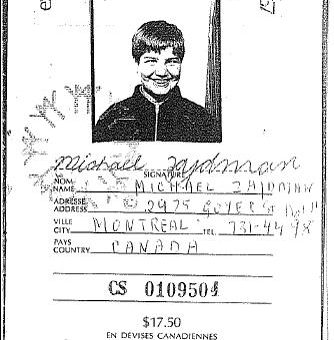 Michael Zajdman
SIGNATURE
NOM
NAME MICHAEL ZAJDMAN
ADRESSE
ADDRESS 2975 GOYER St
VILLE
CITY MONTREAL TEL. 731-4498
PAYS
COUNTRY CANADA
CS 0109504
$17.50
EN DEVISES CANADIENNES